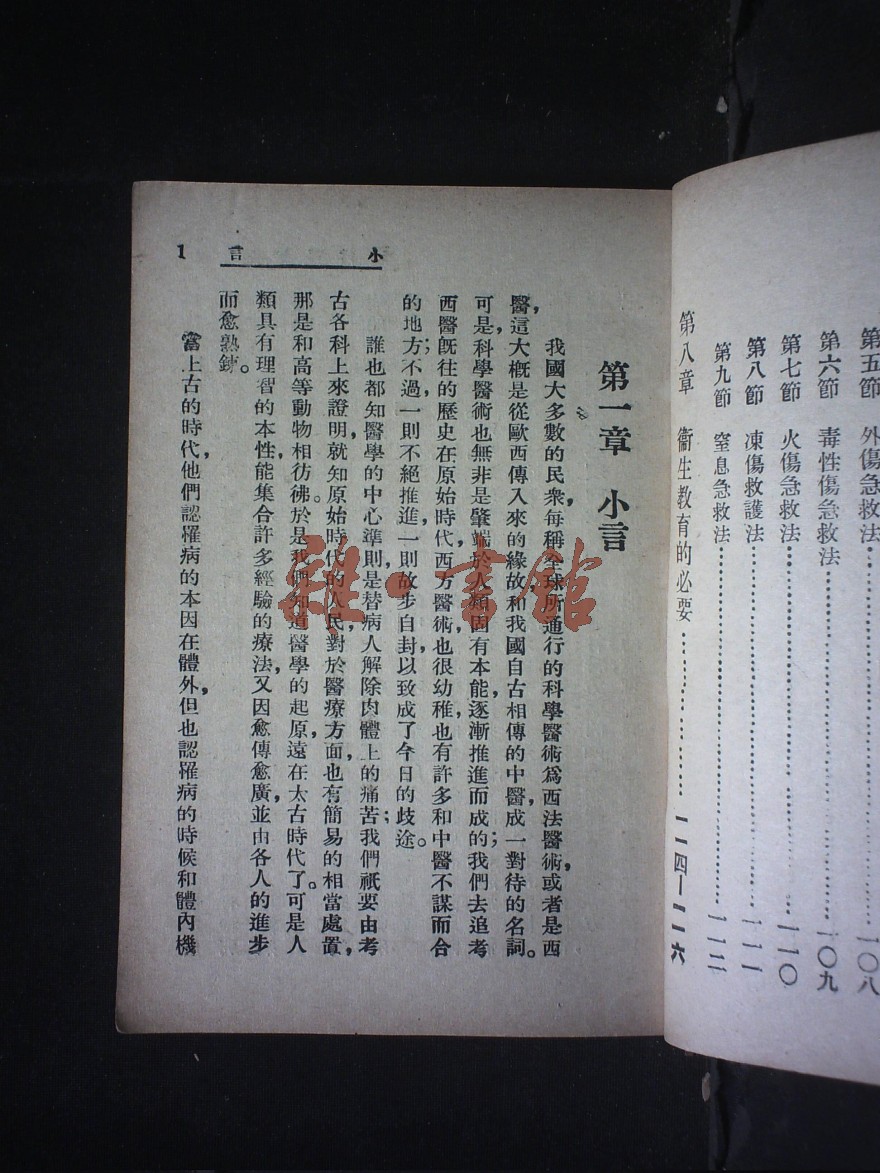 第五節　外傷急救法……………一〇八
第六節　毒性傷急救法……………一〇九
第七節　火傷急救法……………一一〇
第八節　凍傷救護法……………一一一
第九節　窒息急救法……………一一二
第八章　衞生教育的必要……………一一四—一一六
小言
1
第一章　小言
我國大多數的民衆，每稱全球所通行的科學醫術爲西法醫術，或者是西
醫，這大概是從歐西傳入來的緣故，和我國自古相傳的中醫，成一對待的名詞。
可是，科學醫術也無非是肇端於人類固有本能，逐漸推進而成的；我們去追考
西醫既往的歷史，在原始時代，西方醫術，也很幼稚，也有許多和中醫不謀而合
的地方；不過，一則不絕推進，一則故步自封，以致成了今日的歧途。
誰也都知醫學的中心準則，是替病人解除肉體上的痛苦；我們祇要由考
古各科上來證明，就知原始時代的人民，對於醫療方面，也有簡易的相當處置，
那是和高等動物相彷彿。於是我們知道醫學的起原，遠在太古時代了。可是人
類具有理智的本性，能集合許多經驗的療法，又因愈傳愈廣，並由各人的進步
而愈熟練。
當上古的時代，他們認罹病的本因在體外，但也認罹病的時候和體內機
雜·書館